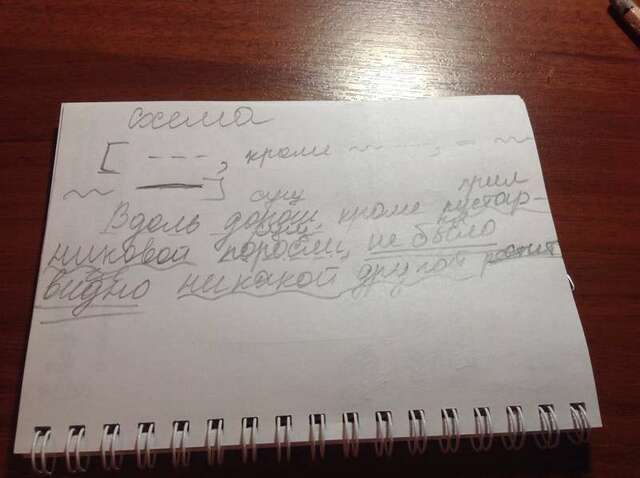 схема
[ – – –, кроме ~~ – – –, = ~~
~~ —— ]
сущ прил
Вдоль дороги кроме кустар-
никовой поросли, не было
видно никакой другой